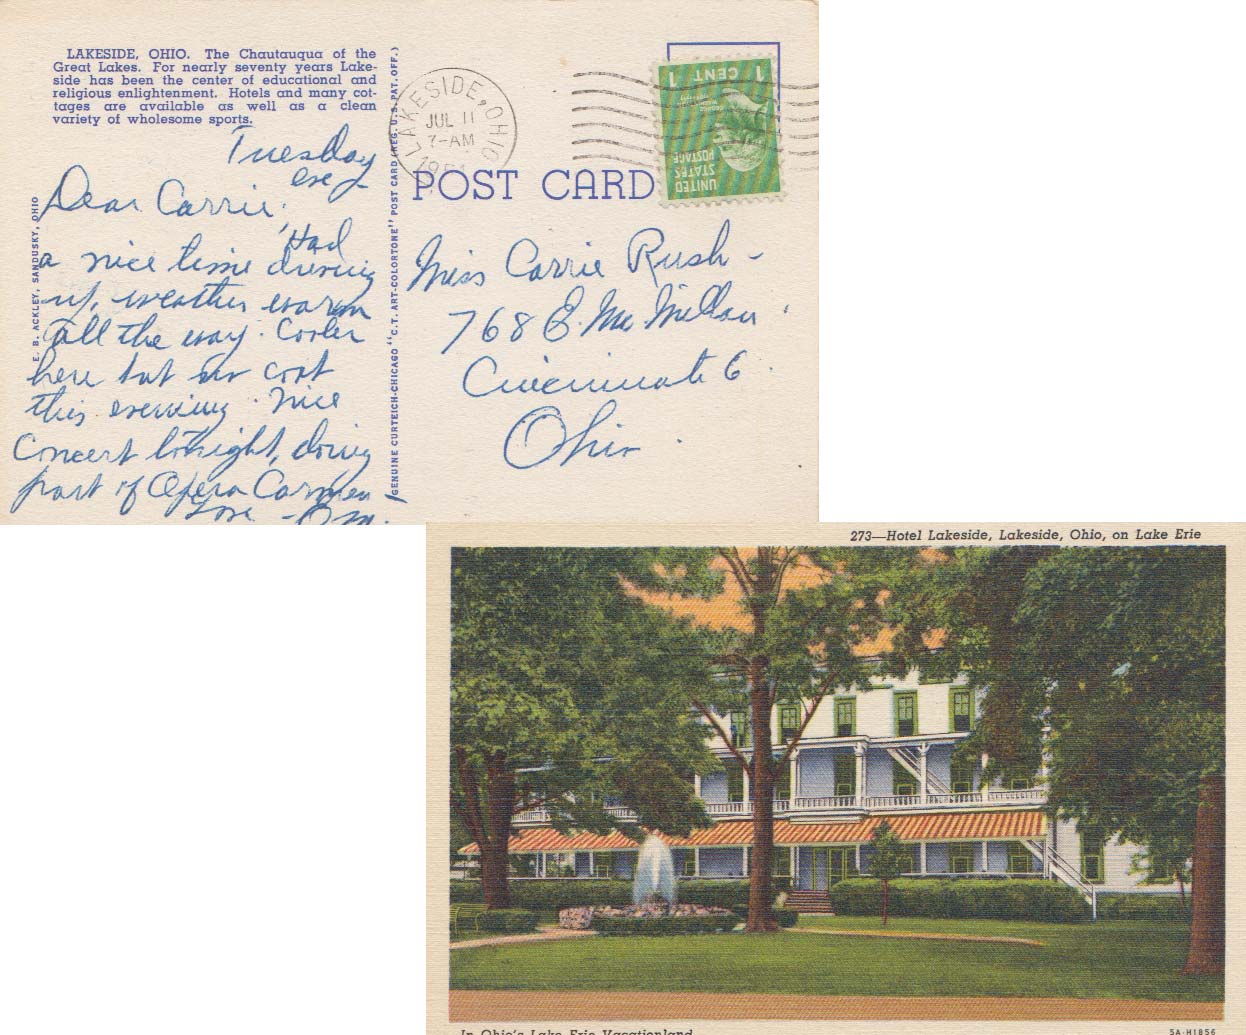 LAKESIDE, OHIO. The Chautauqua of the
Great Lakes. For nearly seventy years Lake-
side has been the center of educational and
religious enlightenment. Hotels and many cot-
tages are available as well as a clean
variety of wholesome sports.
Tuesday
eve
Dear Carrie,
Had
a nice time driving
up, weather warm
all the way. Cooler
here but no coat
this evening. Nice
Concert tonight, doing
part of Opera Carmen
Love
E. B. ACKLEY, SANDUSKY, OHIO
GENUINE CURTEICH-CHICAGO "C.T. ART-COLORTONE" POST CARD (REG. U.S. PAT. OFF.)
LAKESIDE, OHIO
JUL 11
7-AM
POST CARD
UNITED
STATES
POSTAGE
1 CENT 1
Miss Carrie Rush -
768 E McMillan
Cincinnati 6
Ohio
273—Hotel Lakeside, Lakeside, Ohio, on Lake Erie
In Ohio's Lake Erie Vacationland
5A-H1856